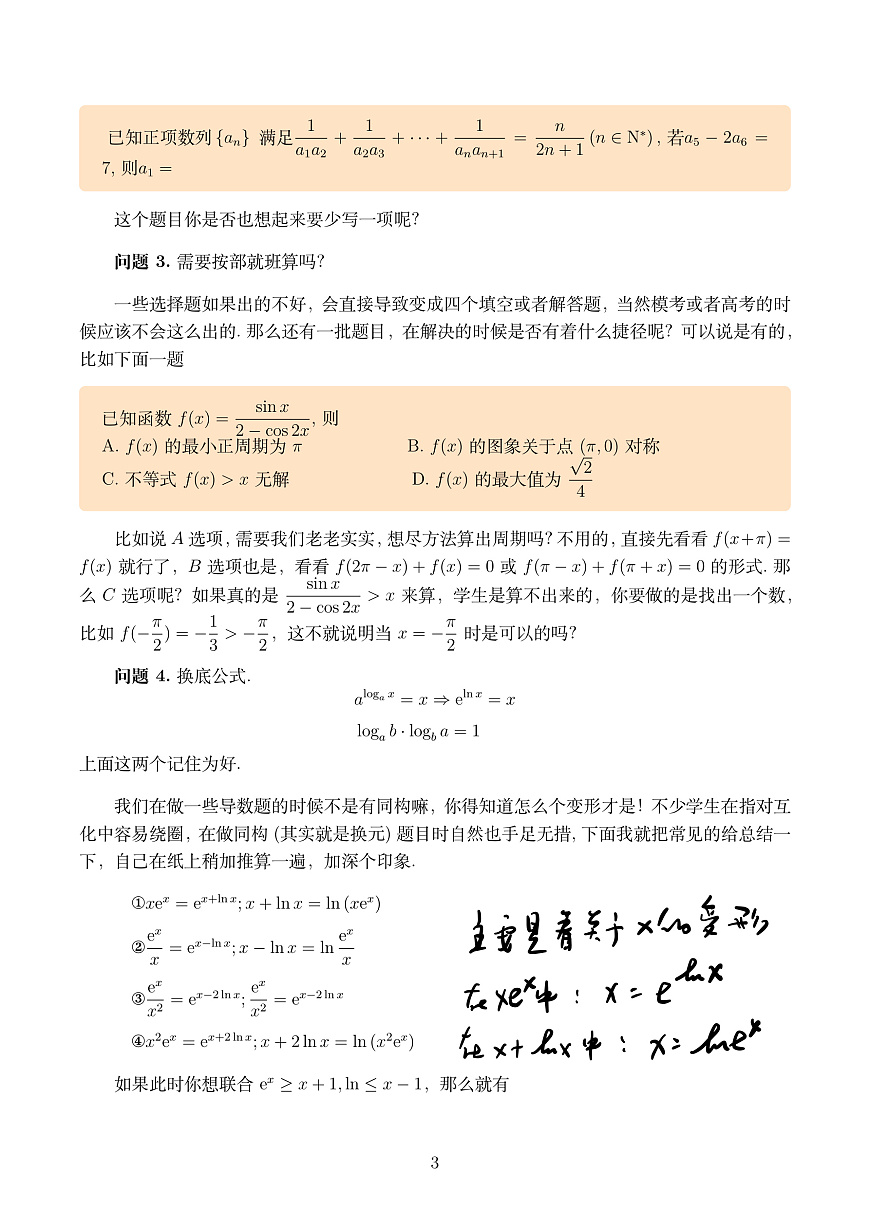 已知正项数列 {aₙ} 满足 1/(a₁a₂) + 1/(a₂a₃) + ··· + 1/(aₙaₙ₊₁) = n/(2n + 1) (n ∈ N*) , 若a₅ − 2a₆ =
7, 则a₁ =
这个题目你是否也想起来要少写一项呢?
问题 3. 需要按部就班算吗?
一些选择题如果出的不好, 会直接导致变成四个填空或者解答题, 当然模考或者高考的时
候应该不会这么出的. 那么还有一批题目, 在解决的时候是否有着什么捷径呢? 可以说是有的,
比如下面一题
已知函数 f(x) = sin x/(2 − cos 2x), 则
A. f(x) 的最小正周期为 π B. f(x) 的图象关于点 (π, 0) 对称
C. 不等式 f(x) > x 无解 D. f(x) 的最大值为 √2/4
比如说 A 选项, 需要我们老老实实, 想尽方法算出周期吗? 不用的, 直接先看看 f(x+π) =
f(x) 就行了, B 选项也是, 看看 f(2π − x) + f(x) = 0 或 f(π − x) + f(π + x) = 0 的形式. 那
么 C 选项呢? 如果真的是 sin x/(2 − cos 2x) > x 来算, 学生是算不出来的, 你要做的是找出一个数,
比如 f(−π/2) = −1/3 > −π/2, 这不就说明当 x = −π/2 时是可以的吗?
问题 4. 换底公式.
a^(logₐ x) = x ⇒ e^(ln x) = x
logₐ b · log_b a = 1
上面这两个记住为好.
我们在做一些导数题的时候不是有同构嘛, 你得知道怎么个变形才是! 不少学生在指对互
化中容易绕圈, 在做同构 (其实就是换元) 题目时自然也手足无措, 下面我就把常见的给总结一
下, 自己在纸上稍加推算一遍, 加深个印象.
①xeˣ = e^(x+ln x); x + ln x = ln (xeˣ)
②eˣ/x = e^(x−ln x); x − ln x = ln eˣ/x
③eˣ/x² = e^(x−2 ln x); eˣ/x² = e^(x−2 ln x)
④x²eˣ = e^(x+2 ln x); x + 2 ln x = ln (x²eˣ)
主要是看关于x的变形
在xeˣ中：x = e^(ln x)
在x+lnx中：x= lneˣ
如果此时你想联合 eˣ ≥ x + 1, ln ≤ x − 1, 那么就有
3